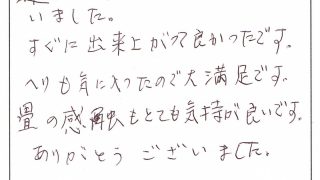 いました。
すぐに出来上がって良かったです。
へりも気に入ったので大満足です。
畳の感触もとても気持が良いです。
ありがとうございました。